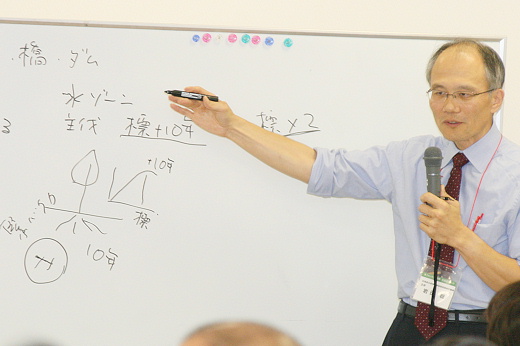 ・橋・ダム
水ゾーン
3 主伐 標+10年 標×2
+10年
標
10年